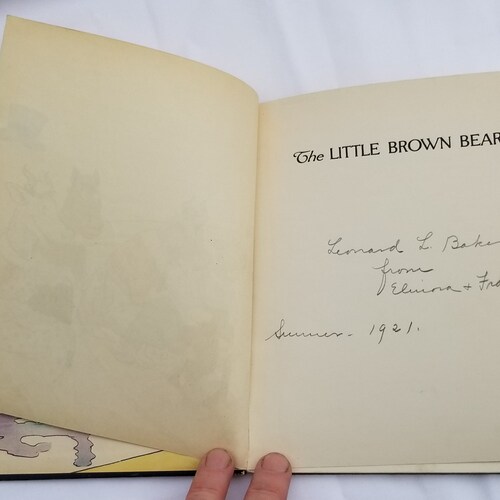 The LITTLE BROWN BEAR
Leonard L. Bake
from
Elinora + Fra
Summer - 1921.